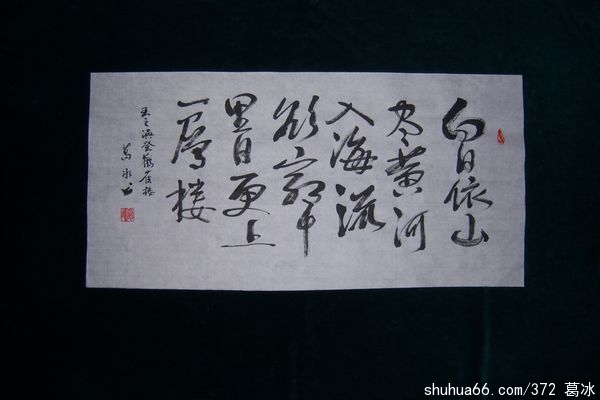 白日依山
尽黄河
入海流
欲窮千
里目更上
一層楼
王之涣登鹳雀楼
葛冰书
shuhua66.com/372 葛冰